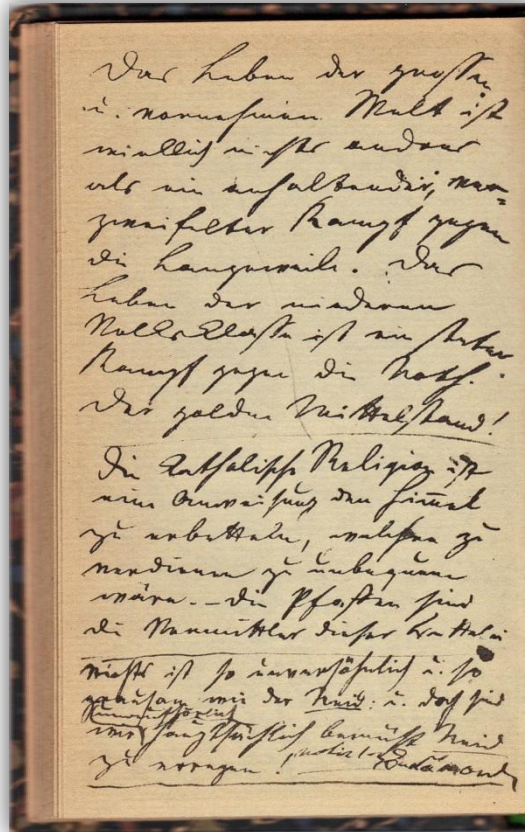 Das Leben der großen
u. vornehmen Welt ist
wirklich nichts anders
als ein anhaltender, ver=
zweifelter Kampf gegen
die Langeweile. Das
Leben der niederen
Volksklasse ist ein steter
Kampf gegen die Noth.
Der goldne Mittelstand!
Die katholische Religion ist
eine Anweisung den Him̅el
zu erbetteln, welchen zu
verdienen zu unbequem
wäre. – Die Pfaffen sind
die Vermittler dieser Bettelei
Nichts ist so unversöhnlich u. so
grausam wie der Neid: u. doch sind
unaufhörlich
wir hauptsächlich bemüht Neid
zu erregen!